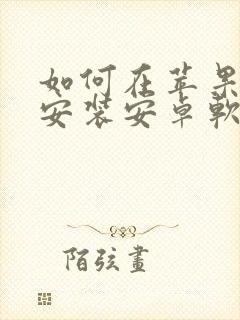 如何在苹果
安装安卓軟
陌弦畫